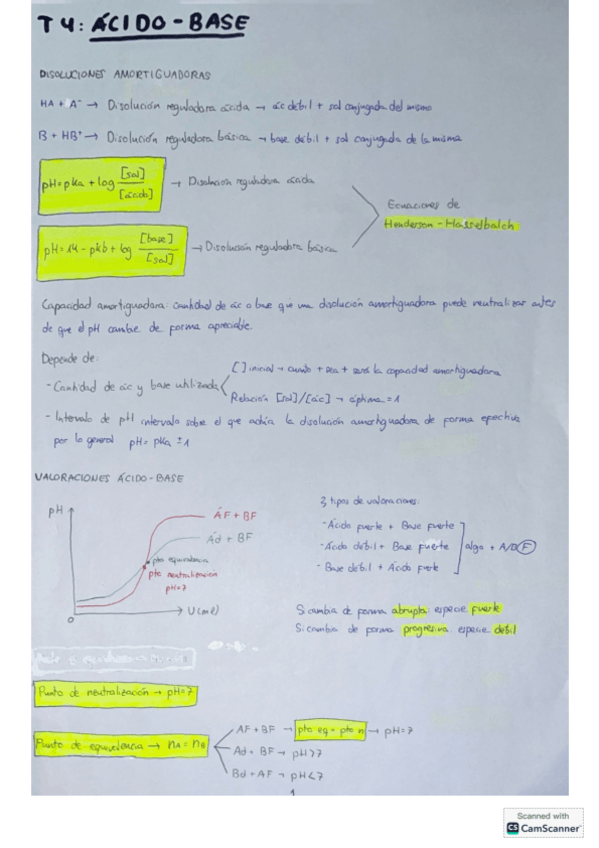 T 4: ÁCIDO-BASE
DISOLUCIONES AMORTIGUADORAS
HA + A⁻ → Disolución reguladora ácida → ác debil + sal conjugada del mismo
B + HB⁺ → Disolución reguladora básica → base débil + sal conjugada de la misma
pH = pKa + log [sal] / [ácido] → Disolución reguladora ácida
Ecuaciones de
Henderson-Hasselbalch
pH = 14 - pKb + log [base] / [sal] → Disolución reguladora básica
Capacidad amortiguadora: cantidad de ác o base que una disolución amortiguadora puede neutralizar antes
de que el pH cambie de forma apreciable.
Depende de:
- Cantidad de ác y base utilizada
[ ] inicial → cuanto + sea + será la capacidad amortiguadora
Relación [sal]/[ác] → óptima = 1
- Intervalo de pH intervalo sobre el que actúa la disolución amortiguadora de forma efectiva
por lo general pH = pKa ± 1
VALORACIONES ÁCIDO-BASE
pH
ÁF + BF
Ád + BF
pto equivalencia
pto neutralización
pH = 7
V(ml)
0
3 tipos de valoraciones:
- Ácido fuerte + Base fuerte
- Ácido débil + Base fuerte
- Base debil + Ácido fuerte
algo + A/B F
Si cambia de forma abrupta: especie fuerte
Si cambia de forma progresiva: especie debil
Punto de neutralización → pH = 7
Punto de equivalencia → nA = nB
AF + BF → pto eq = pto n → pH = 7
Ad + BF → pH > 7
Bd + AF → pH < 7
1
Scanned with
CS CamScanner